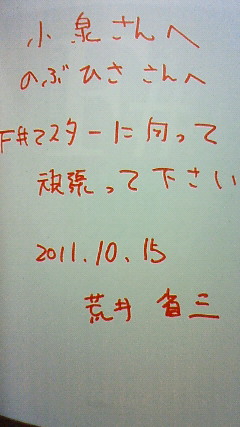 小泉さんへ
のぶひささんへ
F#マスターに向って
頑張って下さい
2011.10.15
荒井 省三